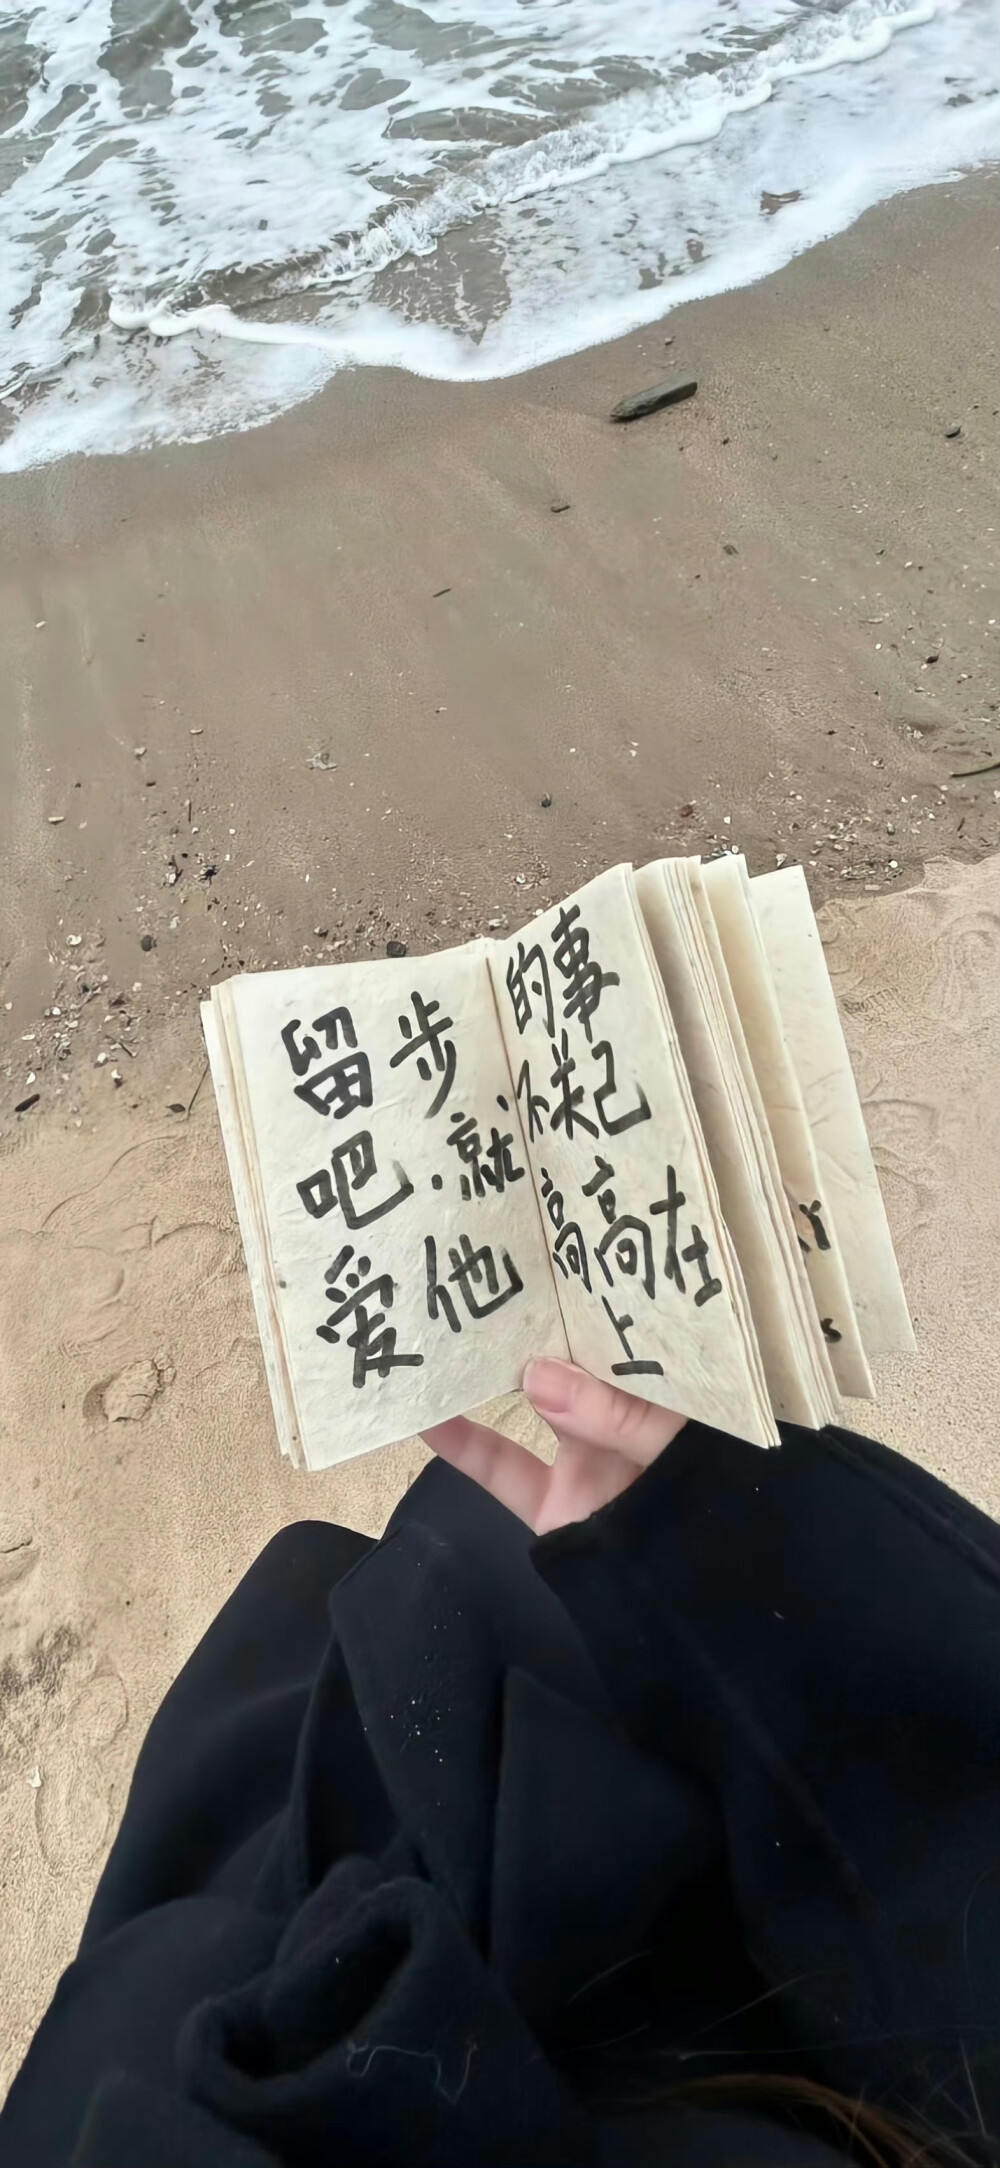 留步
吧就
爱他
的事
不关己
高高在
上